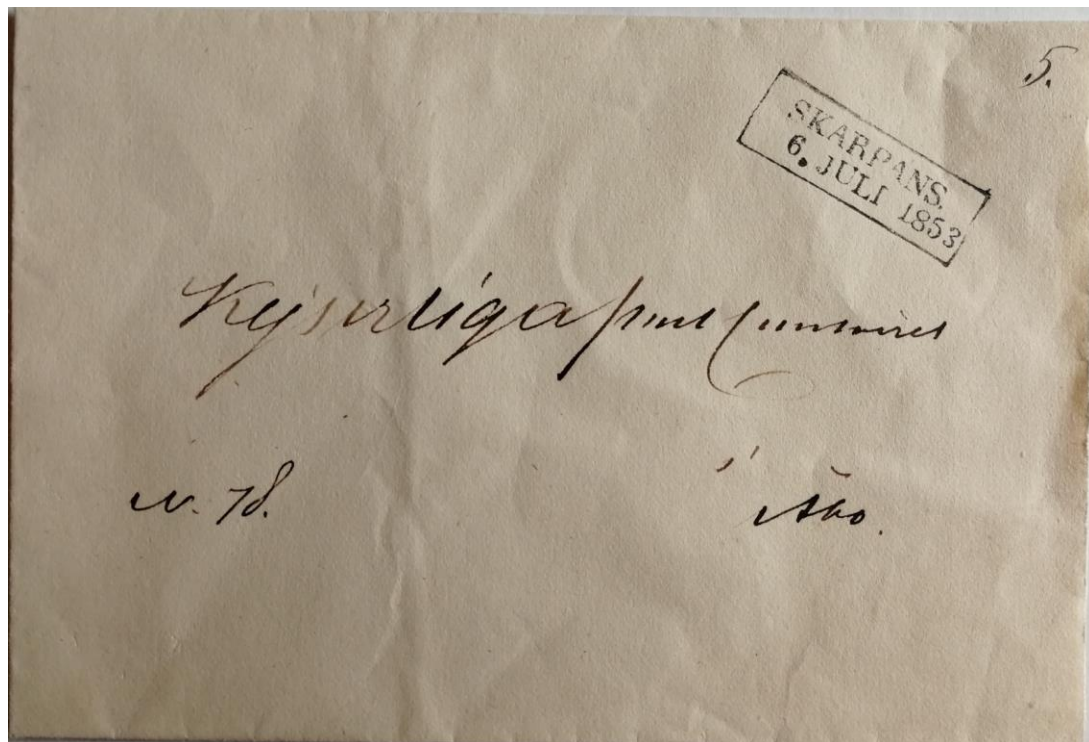 5.
SKARPANS.
6. JULI 1853
Kejserliga post Contoiret
i Åbo.
N. 78.